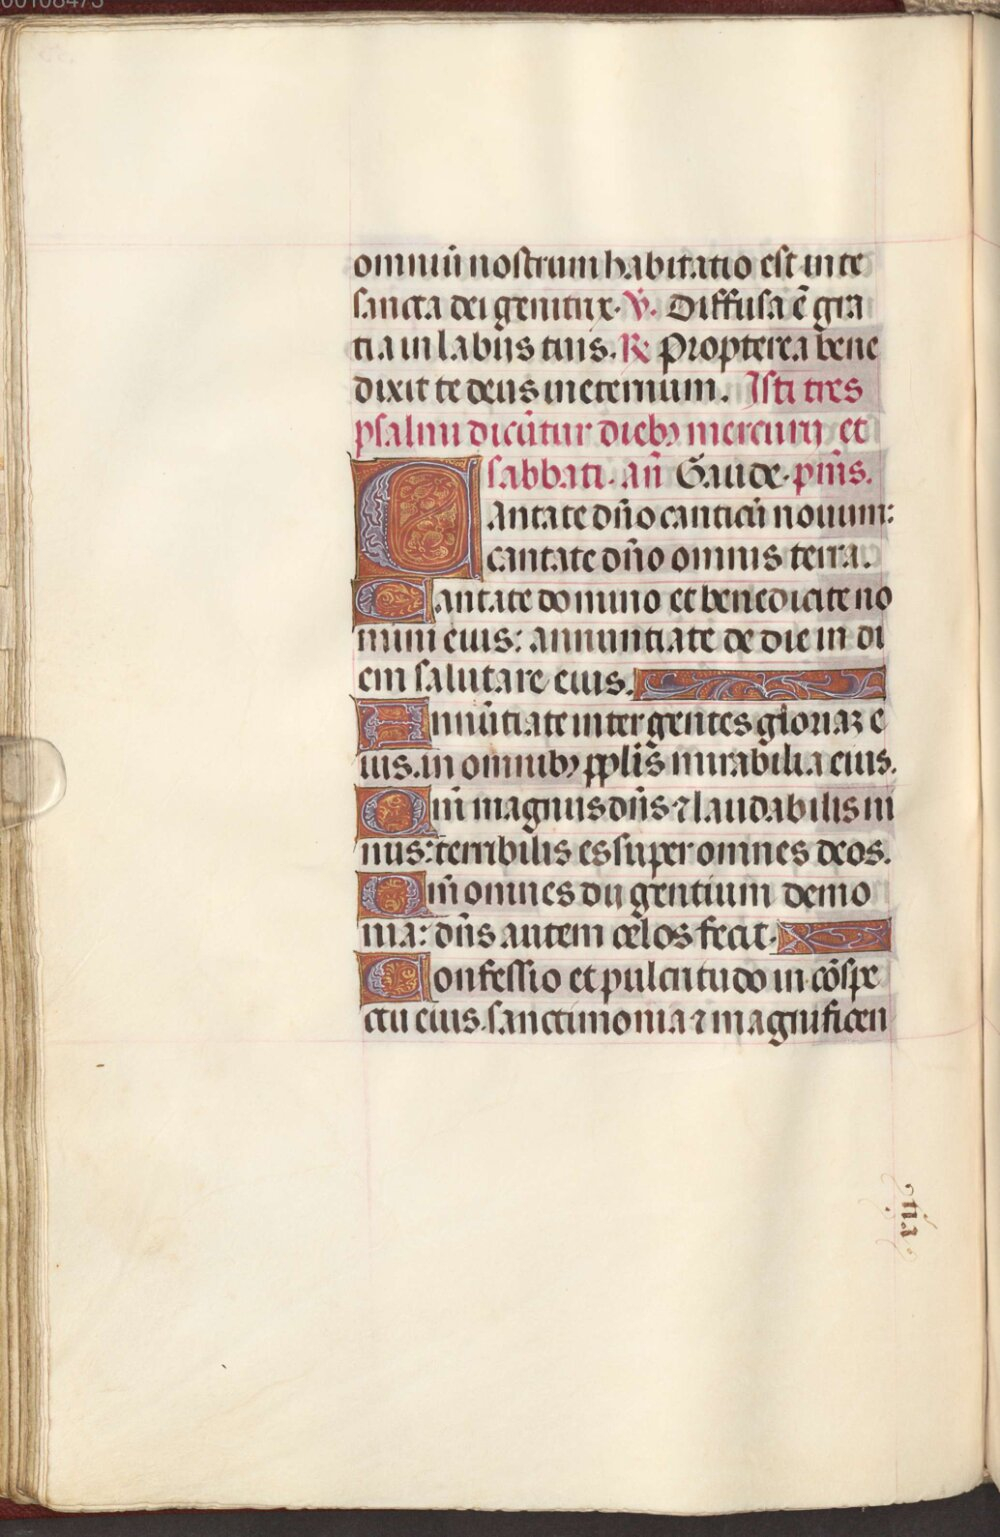 00108473
omniū nostrum habitatio est in te
sancta dei genitrix. ℣. Diffusa ē gra
tia in labiis tuis. ℟ Propterea bene
dixit te deus in eternum. Isti tres
psalmi dicūtur dieb⁹ mercurij et
sabbati. an̄ Gaude. ps̄.
Cantate dn̄o canticū nouum:
cantate dn̄o omnis terra.
Cantate domino et benedicite no
mini eius: annuntiate de die in di
em salutare eius.
Annūtiate inter gentes gloriaꝫ e
ius. in omnib⁹ ppl̄is mirabilia eius.
Qm̄ magnus dn̄s ⁊ laudabilis ni
mis: terribilis es super omnes deos.
Qm̄ omnes dii gentium demo
nia: dn̄s autem celos fecit.
Confessio et pulcritudo in cōspe
ctu eius. sanctimonia ⁊ magnificen
tia